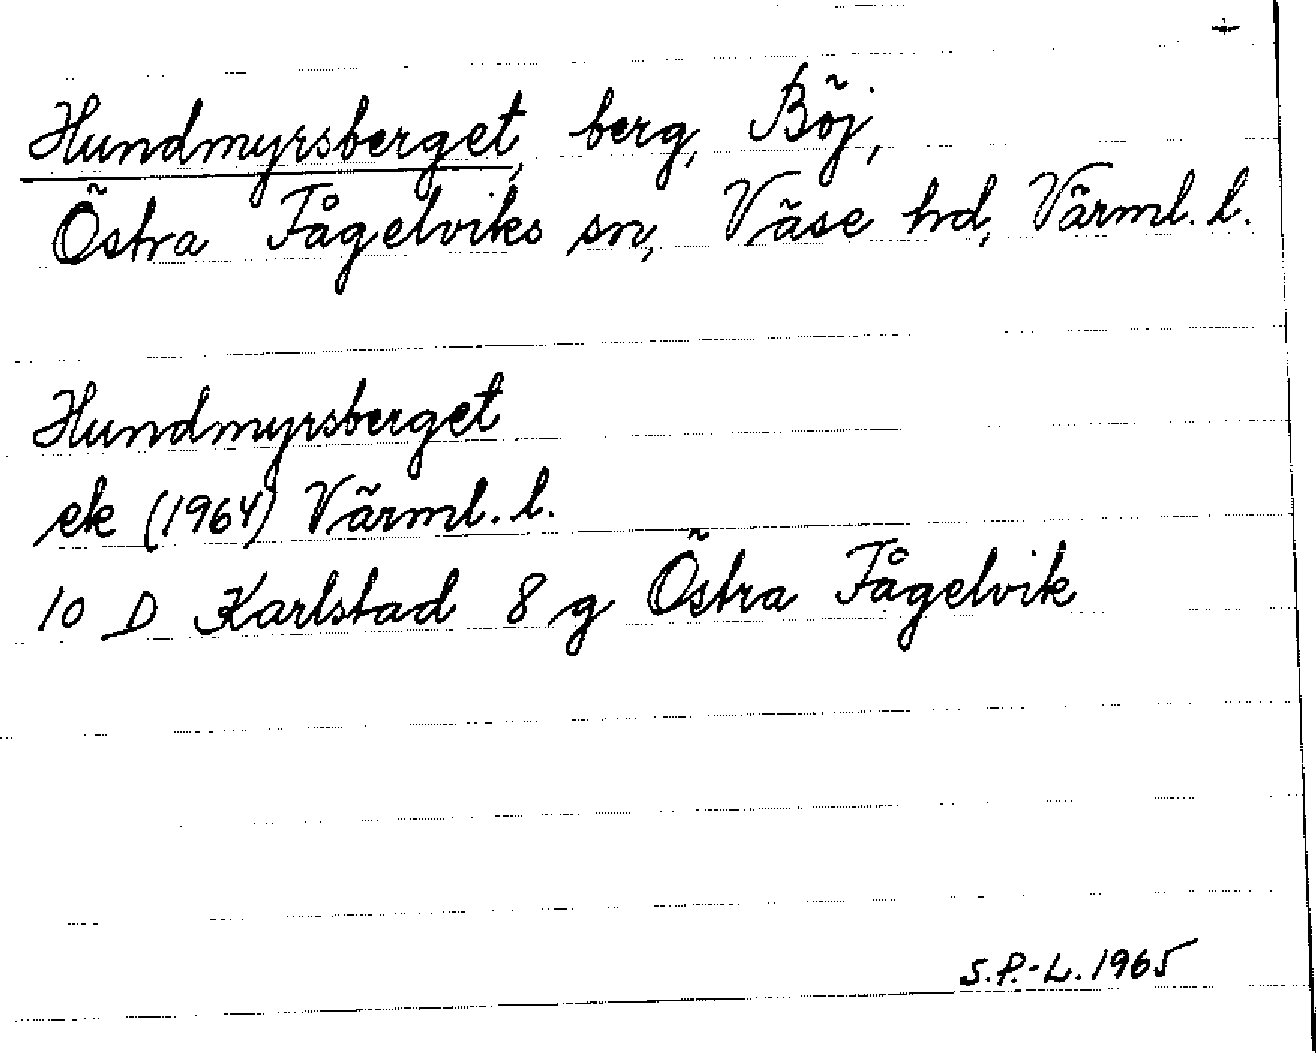 Hundmyrsberget, berg, Böj,
Östra Fågelviks sn, Väse hd, Värml. l.
Hundmyrsberget
ek (1964) Värml. l.
10 D Karlstad 8 g Östra Fågelvik
S.P.-L. 1965